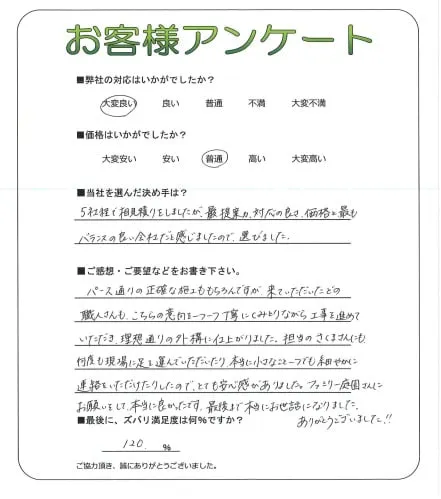 お客様アンケート
■弊社の対応はいかがでしたか?
大変良い 良い 普通 不満 大変不満
■価格はいかがでしたか?
大変安い 安い 普通 高い 大変高い
■当社を選んだ決め手は?
5社程で相見積りをしましたが、最提案力、対応の良さ、価格と最も
バランスの良い会社だと感じましたので、選びました。
■ご感想・ご要望などをお書き下さい。
パース通りの正確な施工ももちろんですが、来ていただいたどの
職人さんも、こちらの意向を一つ一つ丁寧にくみとりながら工事を進めて
いただき、理想通りの外構に仕上がりました。担当のさくまさんにも
何度も現場に足を運んでいただいたり本当に小さなこと一つでも細やかに
連絡をいただけたりしたので、とても安心感がありました。ファミリー庭園さんに
お願いをして、本当に良かったです。最後まで本当にお世話になりました。
ありがとうございました!!
■最後に、ズバリ満足度は何%ですか?
120. %
ご協力頂き、誠にありがとうございました。